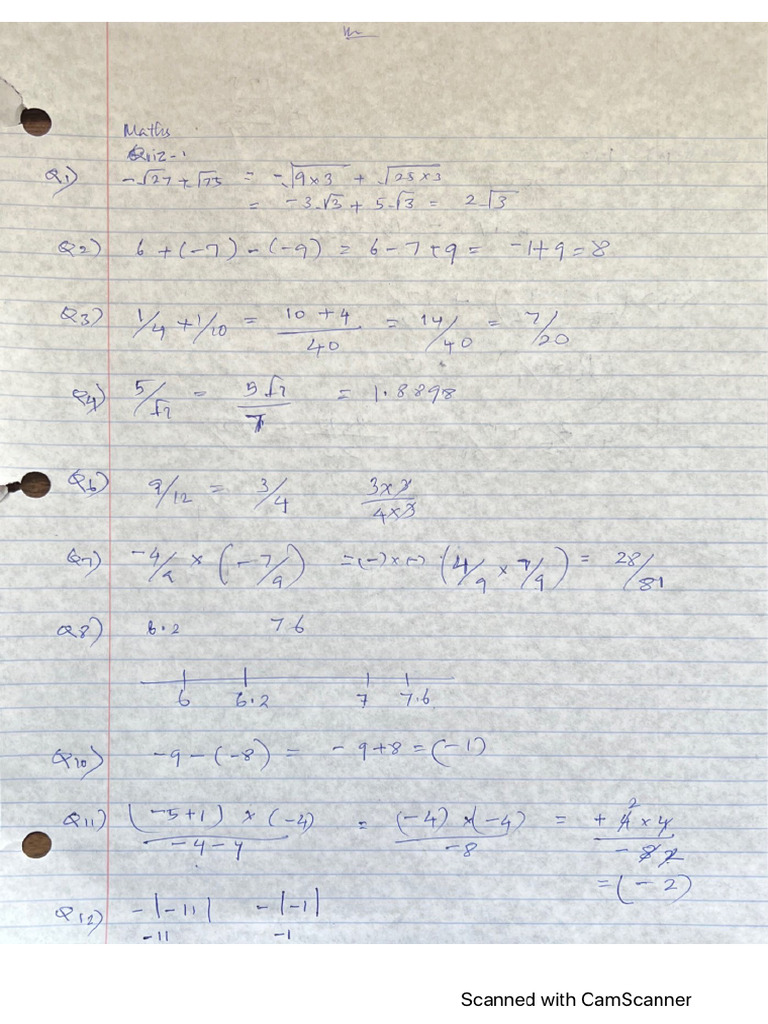 Maths
Quiz-1
Q1) -√27 + √75 = -√9×3 + √25×3
= -3√3 + 5√3 = 2√3
Q2) 6 + (-7) - (-9) = 6 - 7 + 9 = -1 + 9 = 8
Q3) 1/4 + 1/10 = (10 + 4)/40 = 14/40 = 7/20
Q4) 5/√7 = 5√7/7 = 1.8898
Q6) 9/12 = 3/4 3×3/4×3
Q7) -4/9 × (-7/9) = (-)×(-) (4/9 × 7/9) = 28/81
Q8) 6.2 7.6
6 6.2 7 7.6
Q10) -9 - (-8) = -9 + 8 = (-1)
Q11) (-5+1) × (-4)/-4-4 = (-4) × (-4)/-8 = + 4 2 × 4/- 8 2
= (-2)
Q12) -|-11| -|-1|
-11 -1
Scanned with CamScanner